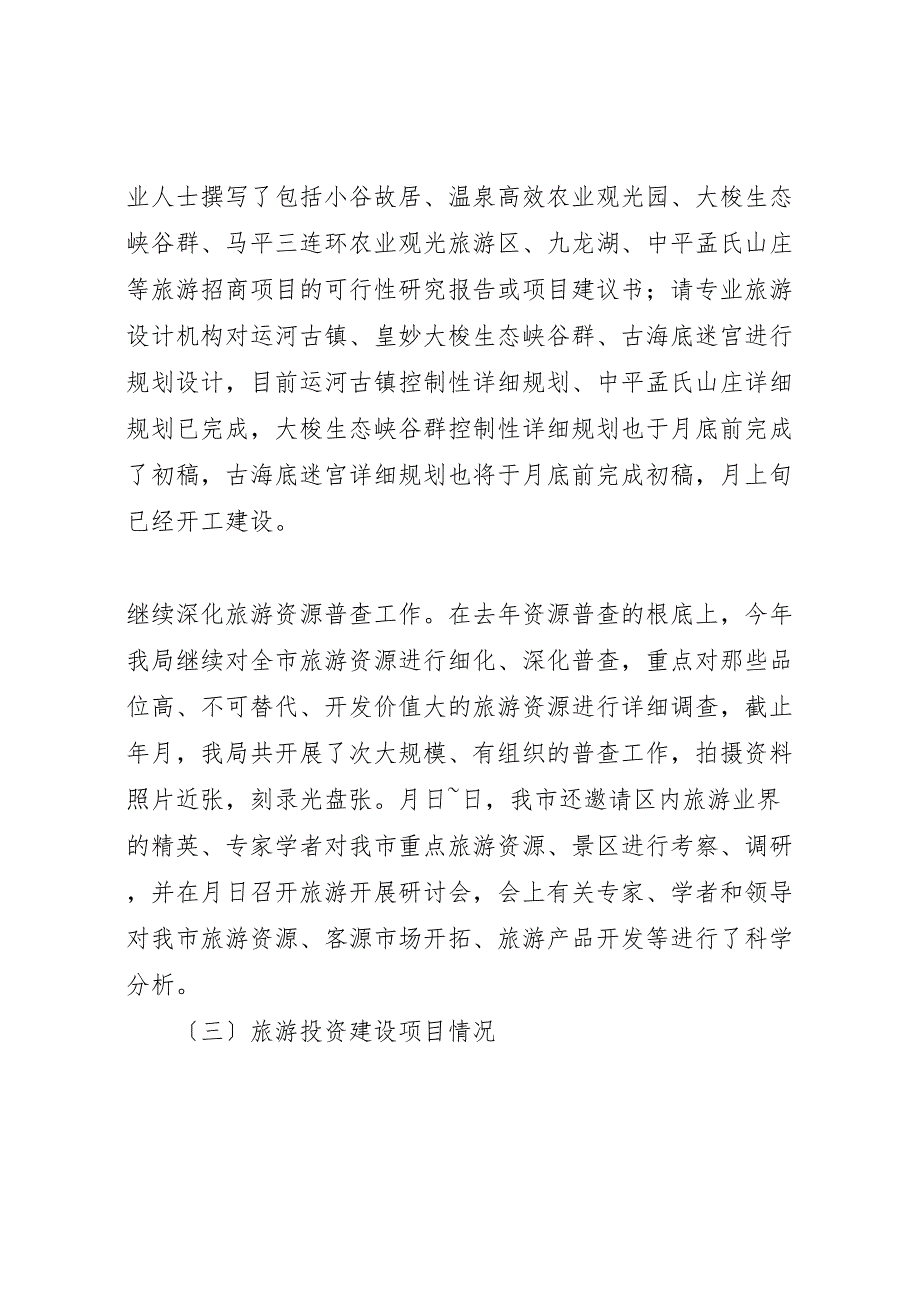 业人士撰写了包括小谷故居、温泉高效农业观光园、大梭生态
峡谷群、马平三连环农业观光旅游区、九龙湖、中平孟氏山庄
等旅游招商项目的可行性研究报告或项目建议书；请专业旅游
设计机构对运河古镇、皇妙大梭生态峡谷群、古海底迷宫进行
规划设计，目前运河古镇控制性详细规划、中平孟氏山庄详细
规划已完成，大梭生态峡谷群控制性详细规划也于月底前完成
了初稿，古海底迷宫详细规划也将于月底前完成初稿，月上旬
已经开工建设。
继续深化旅游资源普查工作。在去年资源普查的根底上，今年
我局继续对全市旅游资源进行细化、深化普查，重点对那些品
位高、不可替代、开发价值大的旅游资源进行详细调查，截止
年月，我局共开展了次大规模、有组织的普查工作，拍摄资料
照片近张，刻录光盘张。月日~日，我市还邀请区内旅游业界
的精英、专家学者对我市重点旅游资源、景区进行考察、调研
，并在月日召开旅游开展研讨会，会上有关专家、学者和领导
对我市旅游资源、客源市场开拓、旅游产品开发等进行了科学
分析。
〔三〕旅游投资建设项目情况